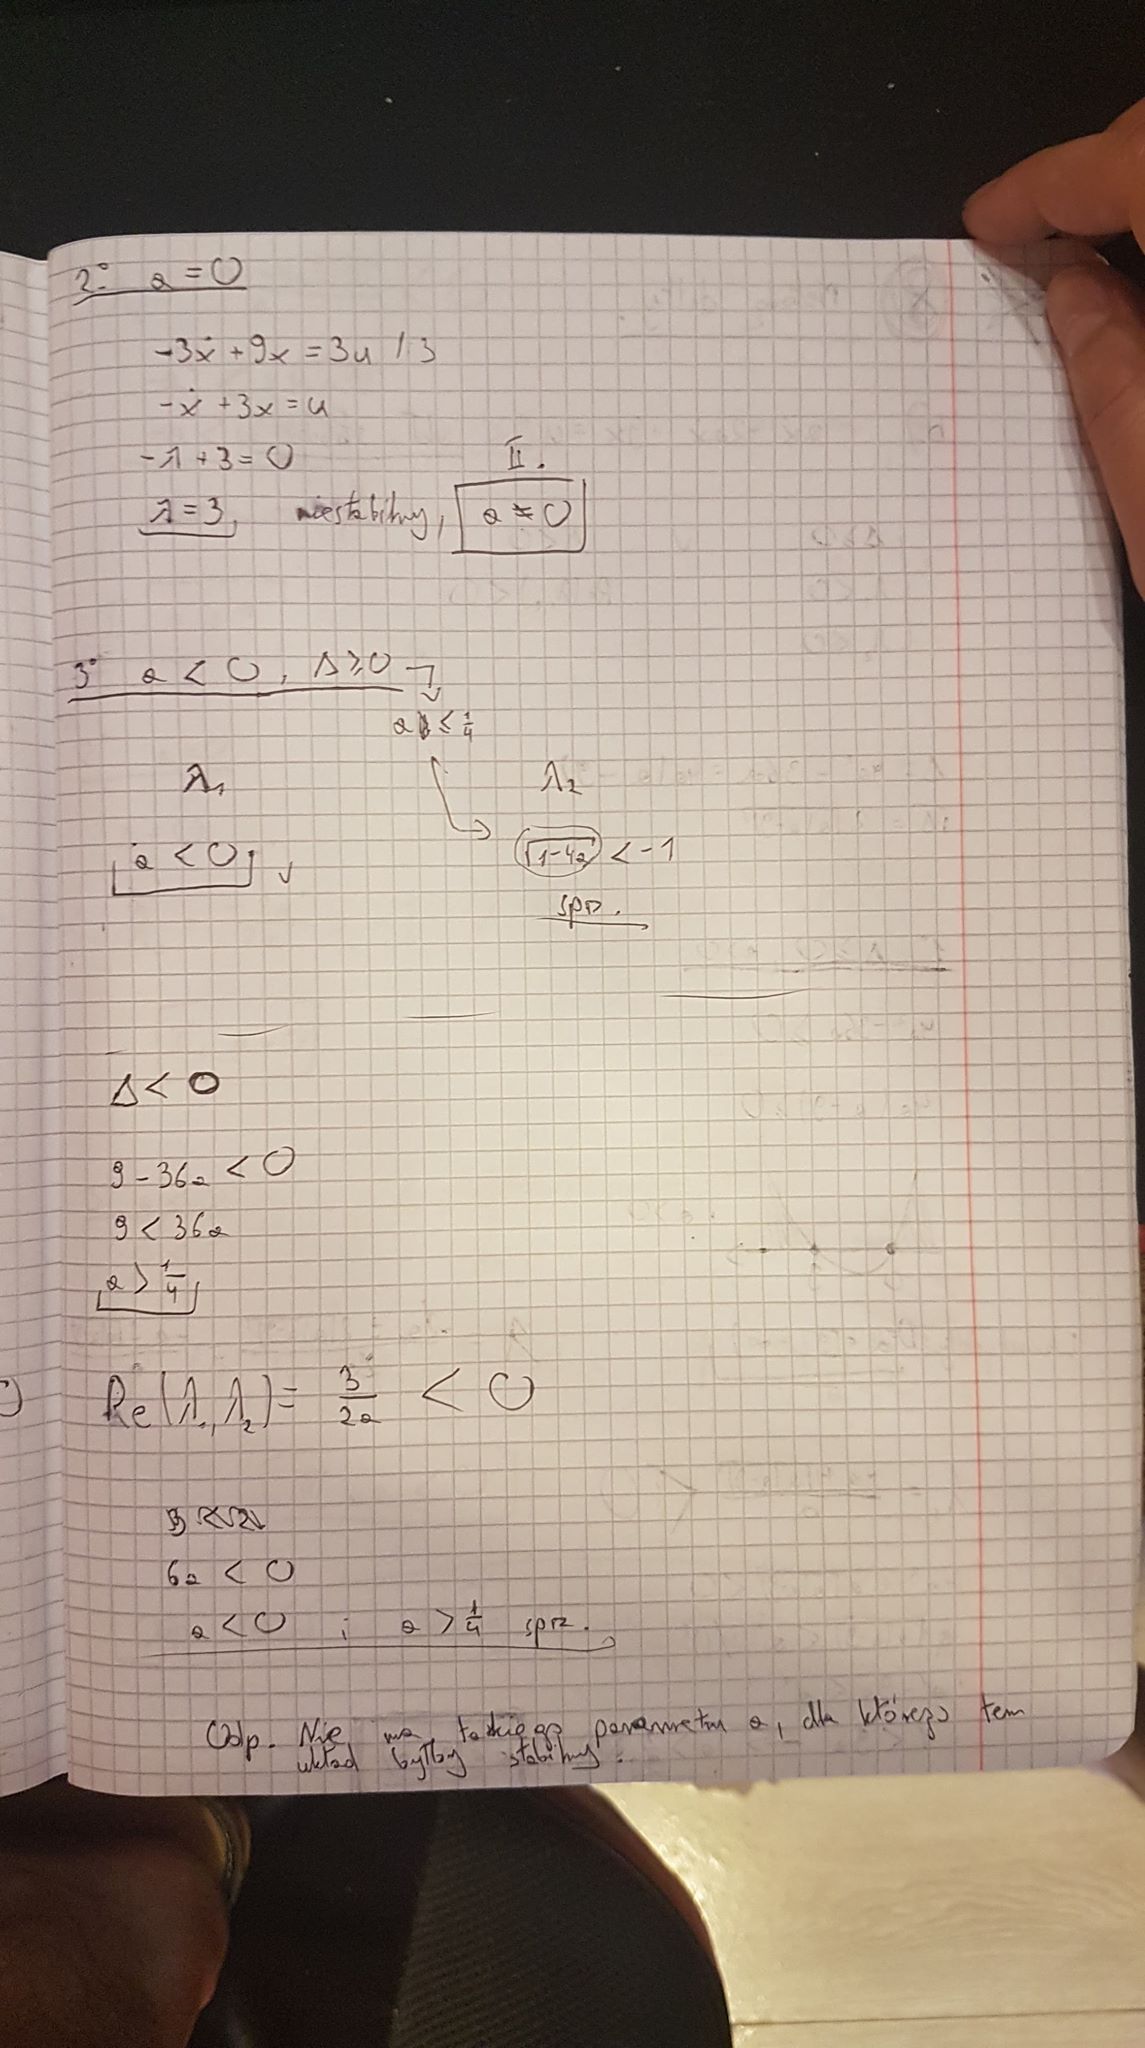 2° a = 0
-3ẋ + 9x = 3u / 3
-ẋ + 3x = u
-λ + 3 = 0
II.
λ = 3, niestabilny, a ≠ 0
3° a < 0, Δ ≥ 0
a ≤ 1/4
λ₁ λ₂
a < 0 √1-4a < -1
spr.
Δ < 0
9 - 36a < 0
9 < 36a
a > 1/4
Re(λ₁, λ₂) = 3/2a < 0
6a < 0
a < 0 i a > 1/4 sprz.
Odp. Nie ma takiego parametru a, dla którego ten
układ byłby stabilny.